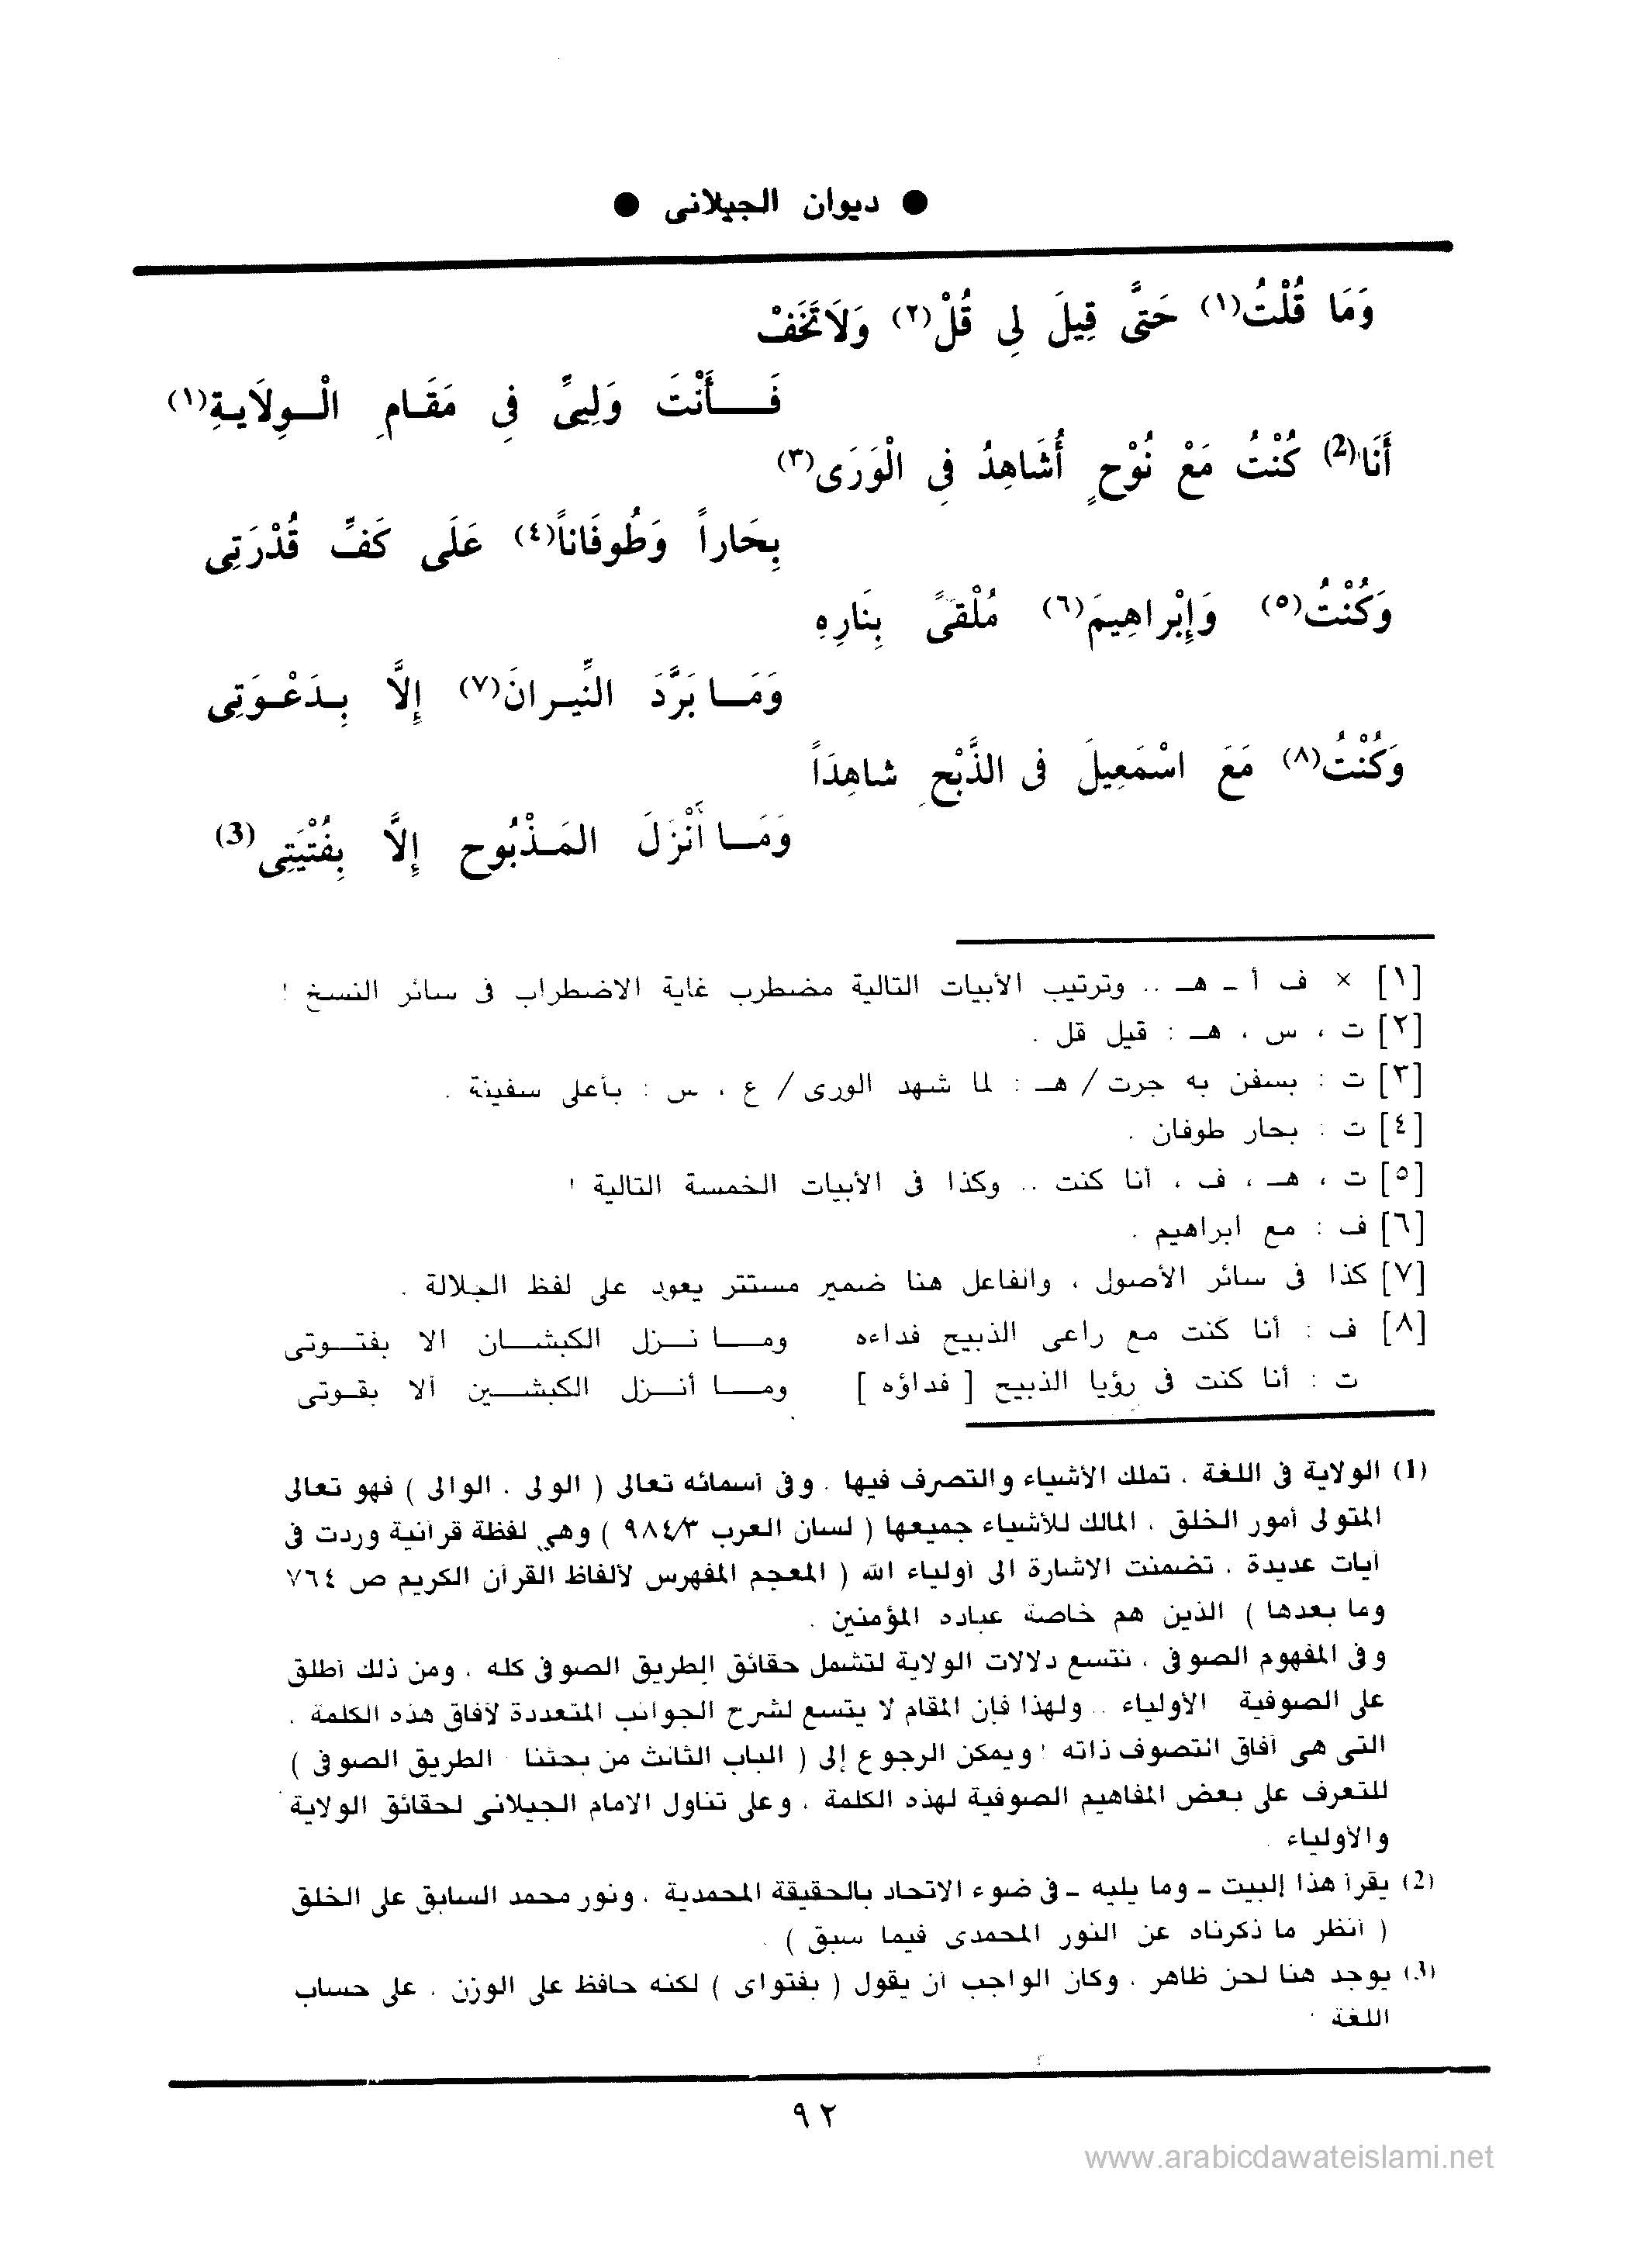 ● ديوان الجيلانى ●
وَمَا قُلْتُ(١) حَتَّى قِيلَ لِى قُلْ(٢) وَلَاتَخَفْ
فَأَنْتَ وَلِيىِّ فِى مَقَامِ الْوِلَايةِ(١)
أَنَا(2) كُنْتُ مَعْ نُوْحٍ أُشَاهِدُ فِى الْوَرَى(٣)
بِحَاراً وَطُوفَاناً(٤) عَلَى كَفِّ قُدْرَتِى
وَكُنْتُ(٥) وَإِبْراهِيمَ(٦) مُلْقىً بِنَارِهِ
وَمَا بَرَّدَ النِّيرانَ(٧) إِلَّا بِدَعْوَتِى
وَكُنْتُ(٨) مَعَ اسْمَعِيلَ فى الذَّبْحِ شاهِدَاً
وَمَا أَنْزَلَ المَذْبُوح إِلَّا بِفُتْيَتِى(3)
[١] × ف أ ـ هـ .. وترتيب الأبيات التالية مضطرب غاية الاضطراب فى سائر النسخ !
[٢] ت ، س ، هـ : قيل قل .
[٣] ت : بسفن به جرت / هـ : لما شهد الورى / ع ، س : بأعلى سفينة .
[٤] ت : بحار طوفان .
[٥] ت ، هـ ، ف ، أنا كنت .. وكذا فى الأبيات الخمسة التالية !
[٦] ف : مع ابراهيم .
[٧] كذا فى سائر الأصول ، والفاعل هنا ضمير مستتر يعود على لفظ الجلالة .
[٨] ف : أنا كنت مع راعى الذبيح فداءه ومـا نـزل الكبشـان الا بفتـوتى
ت : أنا كنت فى رؤيا الذبيح [ فداؤه ] ومـا أنـزل الكبشـين ألا بقـوتى
(1) الولاية فى اللغة ، تملك الأشياء والتصرف فيها . وفى أسمائه تعالى ( الولى ، الوالى ) فهو تعالى
المتولى أمور الخلق ، المالك للأشياء جميعها ( لسان العرب ٩٨٤/٣ ) وهى لفظة قرآنية وردت فى
آيات عديدة ، تضمنت الاشارة الى أولياء الله ( المعجم المفهرس لألفاظ القرآن الكريم ص ٧٦٤
وما بعدها ) الذين هم خاصة عباده المؤمنين .
وفى المفهوم الصوفى ، تتسع دلالات الولاية لتشمل حقائق الطريق الصوفى كله ، ومن ذلك أطلق
على الصوفية الأولياء .. ولهذا فإن المقام لا يتسع لشرح الجوانب المتعددة لآفاق هذه الكلمة ،
التى هى آفاق التصوف ذاته ! ويمكن الرجوع إلى ( الباب الثالث من بحثنا الطريق الصوفى )
للتعرف على بعض المفاهيم الصوفية لهذه الكلمة ، وعلى تناول الامام الجيلانى لحقائق الولاية
والأولياء .
(2) يقرأ هذا البيت ـ وما يليه ـ فى ضوء الاتحاد بالحقيقة المحمدية ، ونور محمد السابق على الخلق
( أنظر ما ذكرناه عن النور المحمدى فيما سبق ) .
(3) يوجد هنا لحن ظاهر ، وكان الواجب أن يقول ( بفتواى ) لكنه حافظ على الوزن ، على حساب
اللغة
٩٢
www.arabicdawateislami.net